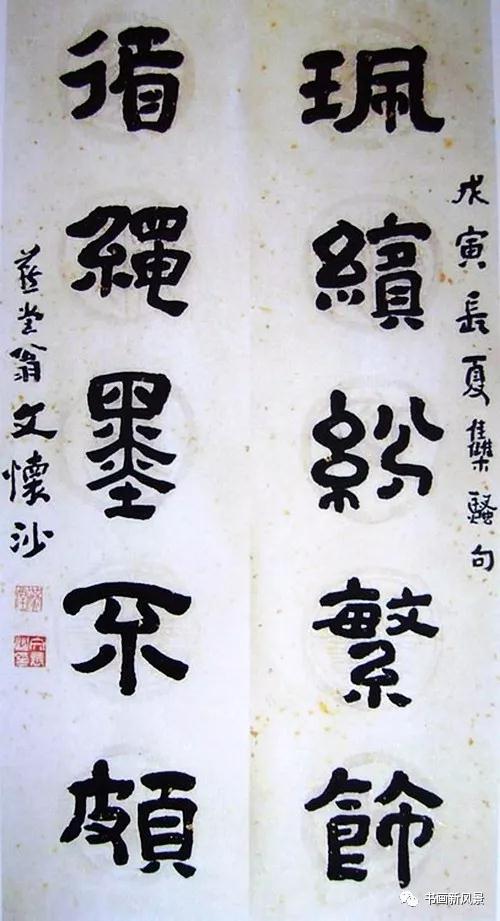 戊寅長夏集騷句
珮繽紛繁飾
循繩墨不頗
燕堂翁文懷沙
书画新风景